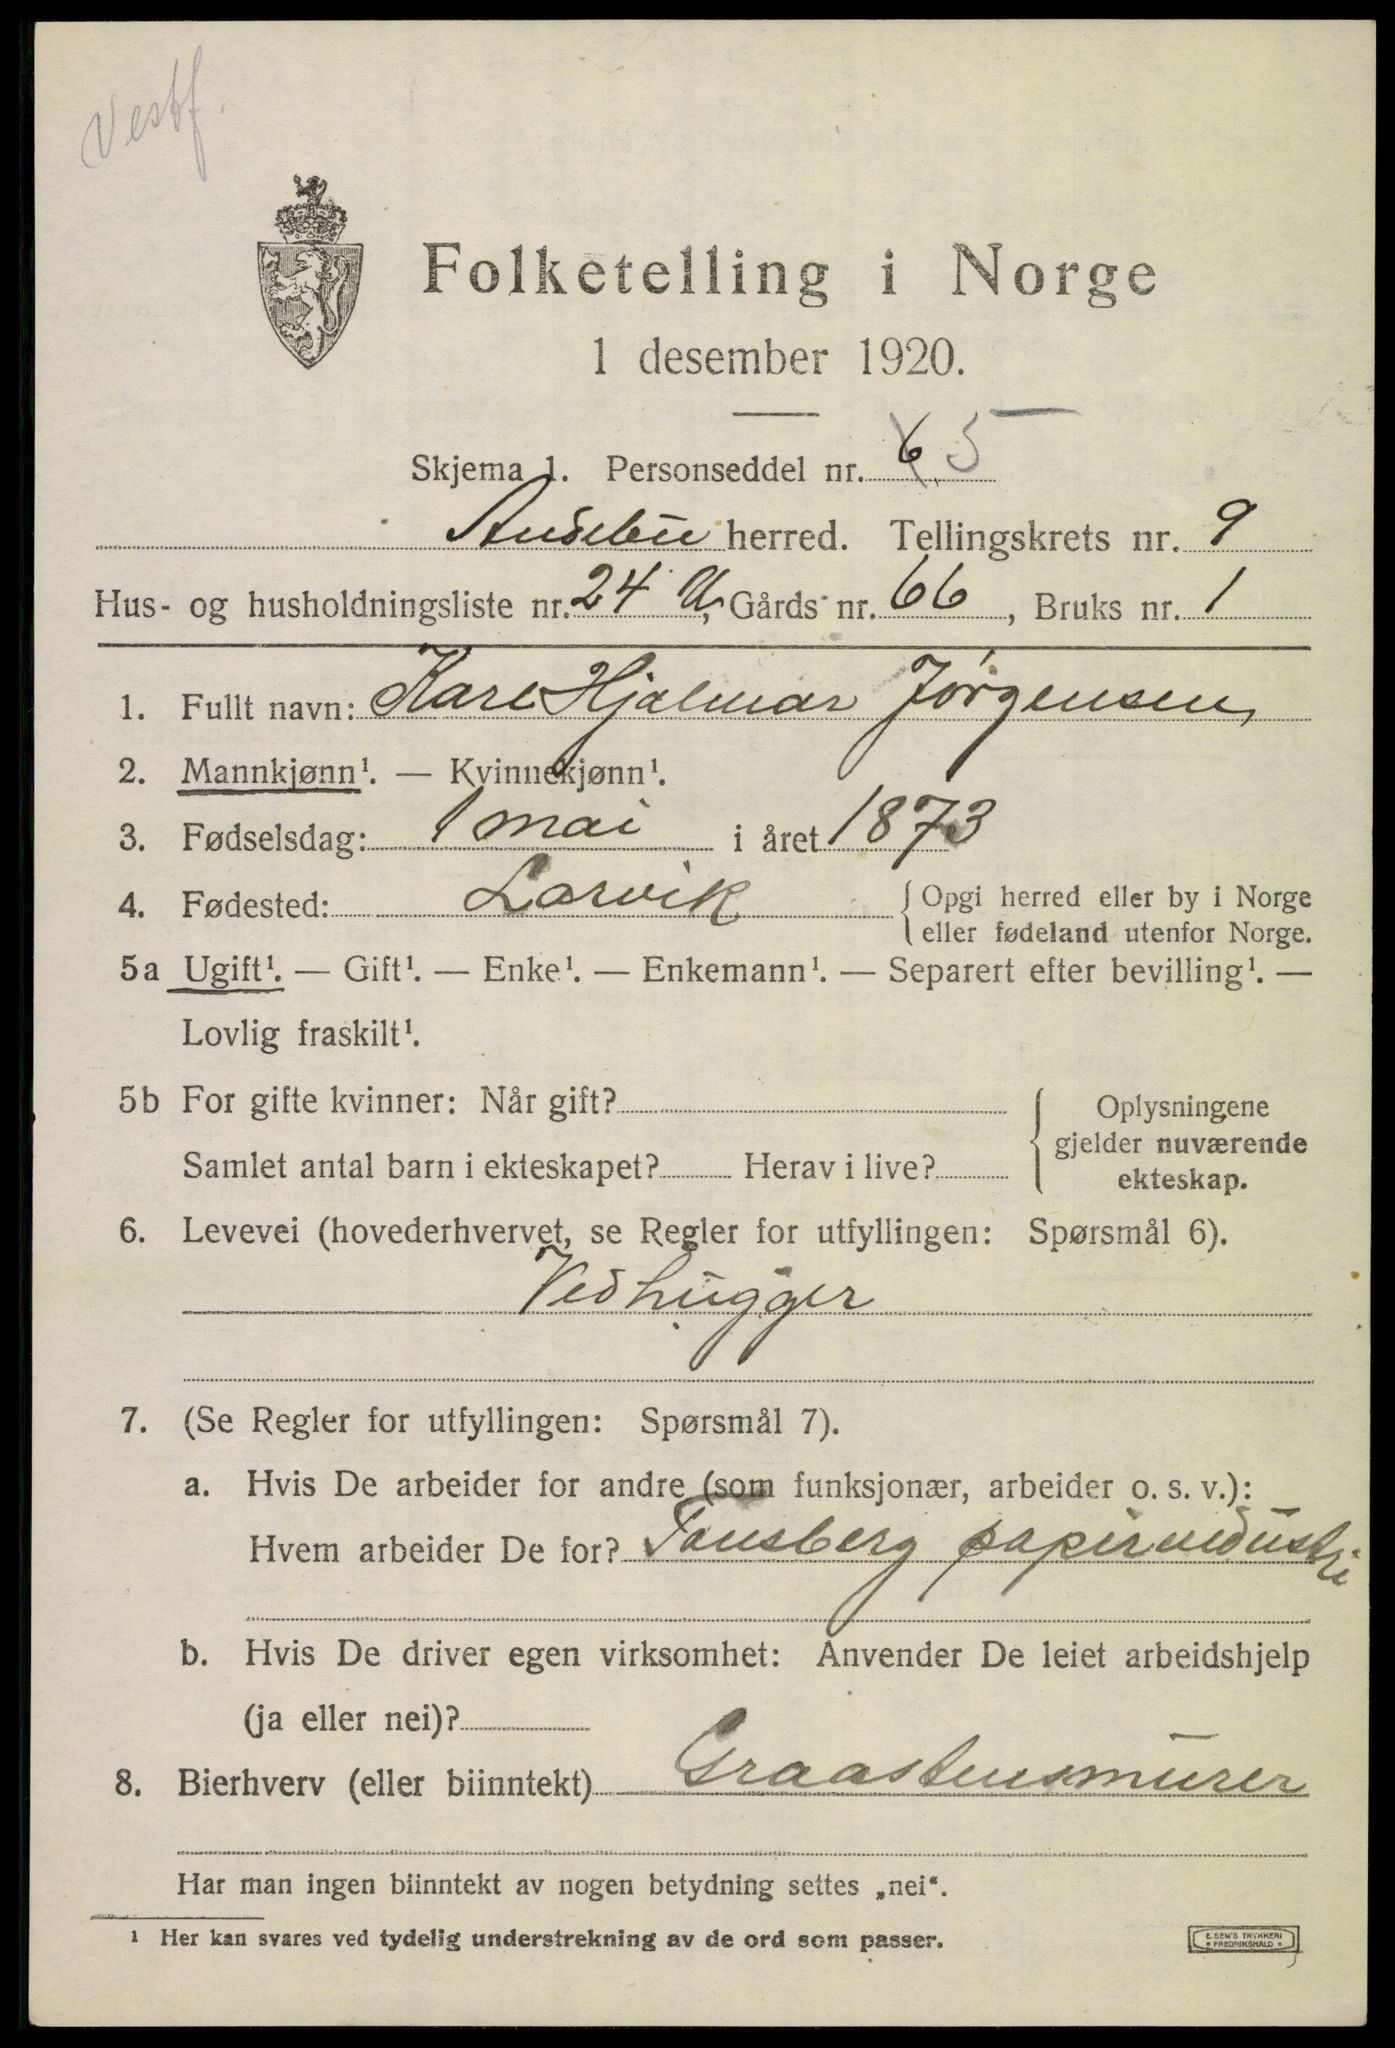 Vestf.
Folketelling i Norge
1 desember 1920.
Skjema 1. Personseddel nr. 6 5
Andebu herred. Tellingskrets nr. 9
Hus- og husholdningsliste nr. 24 U, Gårds nr. 66, Bruks nr. 1
1. Fullt navn: Karl Hjalmar Jørgensen
2. Mannkjønn¹. — Kvinnekjønn¹.
3. Fødselsdag: 1 mai i året 1873
4. Fødested: Larvik { Opgi herred eller by i Norge
eller fødeland utenfor Norge.
5a Ugift¹. — Gift¹. — Enke¹. — Enkemann¹. — Separert efter bevilling¹. —
Lovlig fraskilt¹.
5b For gifte kvinner: Når gift?
Samlet antal barn i ekteskapet? Herav i live?
Oplysningene
gjelder nuværende
ekteskap.
6. Levevei (hovederhvervet, se Regler for utfyllingen: Spørsmål 6).
Vedhugger
7. (Se Regler for utfyllingen: Spørsmål 7).
a. Hvis De arbeider for andre (som funksjonær, arbeider o. s. v.):
Hvem arbeider De for? Tønsberg papirindustri
b. Hvis De driver egen virksomhet: Anvender De leiet arbeidshjelp
(ja eller nei)?
8. Bierhverv (eller biinntekt) Graastensmurer
Har man ingen biinntekt av nogen betydning settes „nei“.
¹ Her kan svares ved tydelig understrekning av de ord som passer.
E. SEM'S TRYKKERI
FREDRIKSHALD